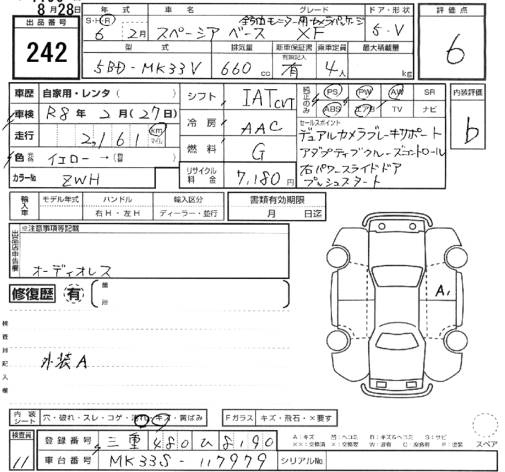 8月28日
出品番号
242
年式 車名 グレード ドア・形状 評価点
S・H・R
6年 2月 スペーシア ベース XF 5・V 6
全方位モニター用カメラパッケージ
型式 排気量 新車保証書 乗車定員 最大積載量
5BD-MK33V 660cc 有 4人 kg
車歴 自家用・レンタ( )
車検 R8年 2月(27日)
走行 2,161 km マイル
色 イエロー→( )
カラーNo ZWH
シフト IAT CVT
冷房 AAC
燃料 G
リサイクル料金 7,180円
純正のみ PS PW AW SR
ABS エアB TV ナビ
内装評価
b
セールスポイント
デュアルカメラブレーキサポート
アダプティブクルーズコントロール
右パワースライドドア
プッシュスタート
輸入車 モデル年式 ハンドル 輸入区分
右H・左H ディーラー・並行
書類有効期限
月 日迄
出品店申告欄
※注意事項等記載
オーディオレス
修復歴 有 箇所
検査員記入欄
外装A
A1
内装シート 穴・破れ・スレ・コゲ・汚れ・キズ・黄ばみ
Fガラス キズ・飛石・×要す
検査員
11
登録番号 三重 480 ひ 8190
車台番号 MK33S-117979 シリアルNo
スペア